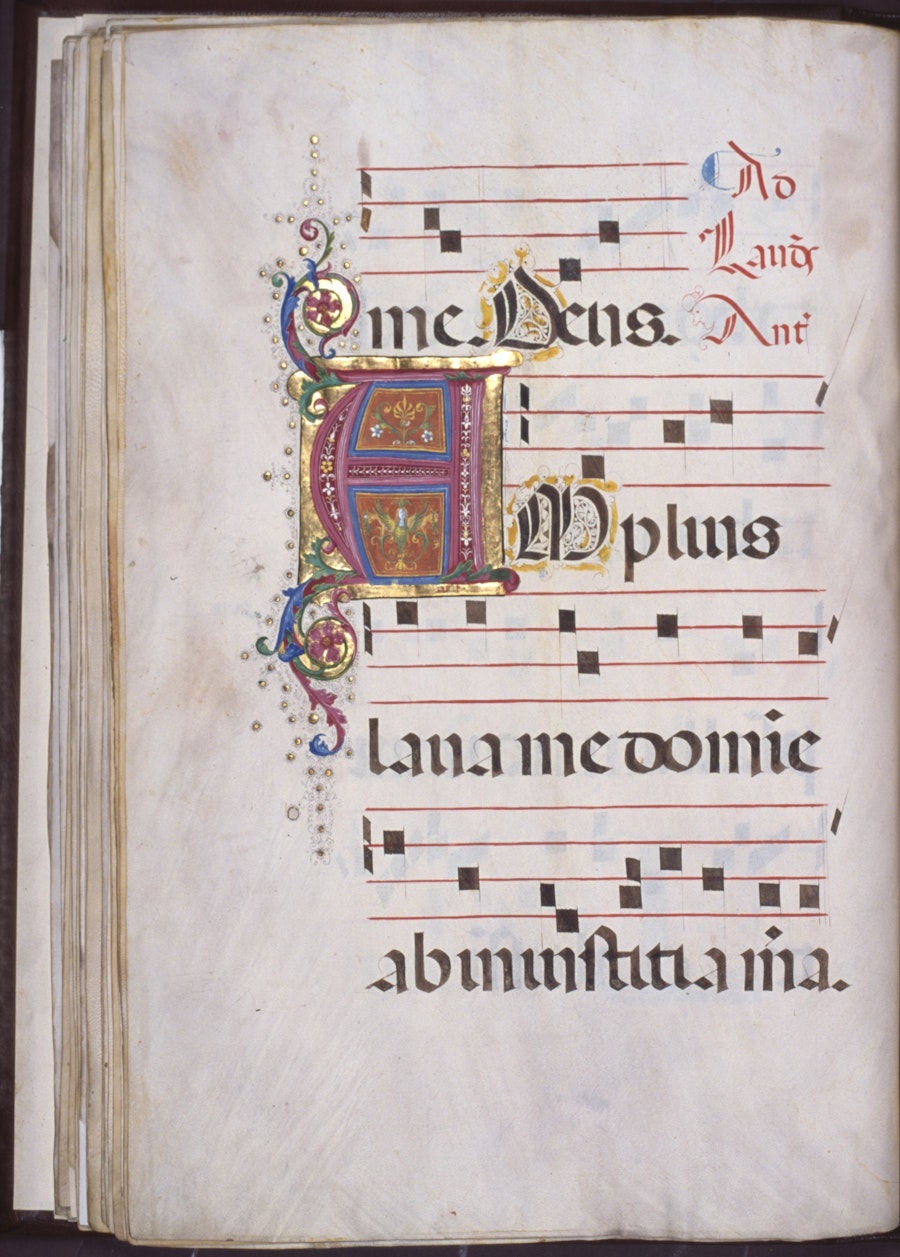 me. Deus.
Ad
Laudꝭ
Antˀ
AMplius
laua me domīe
ab iniustitia m̄a.